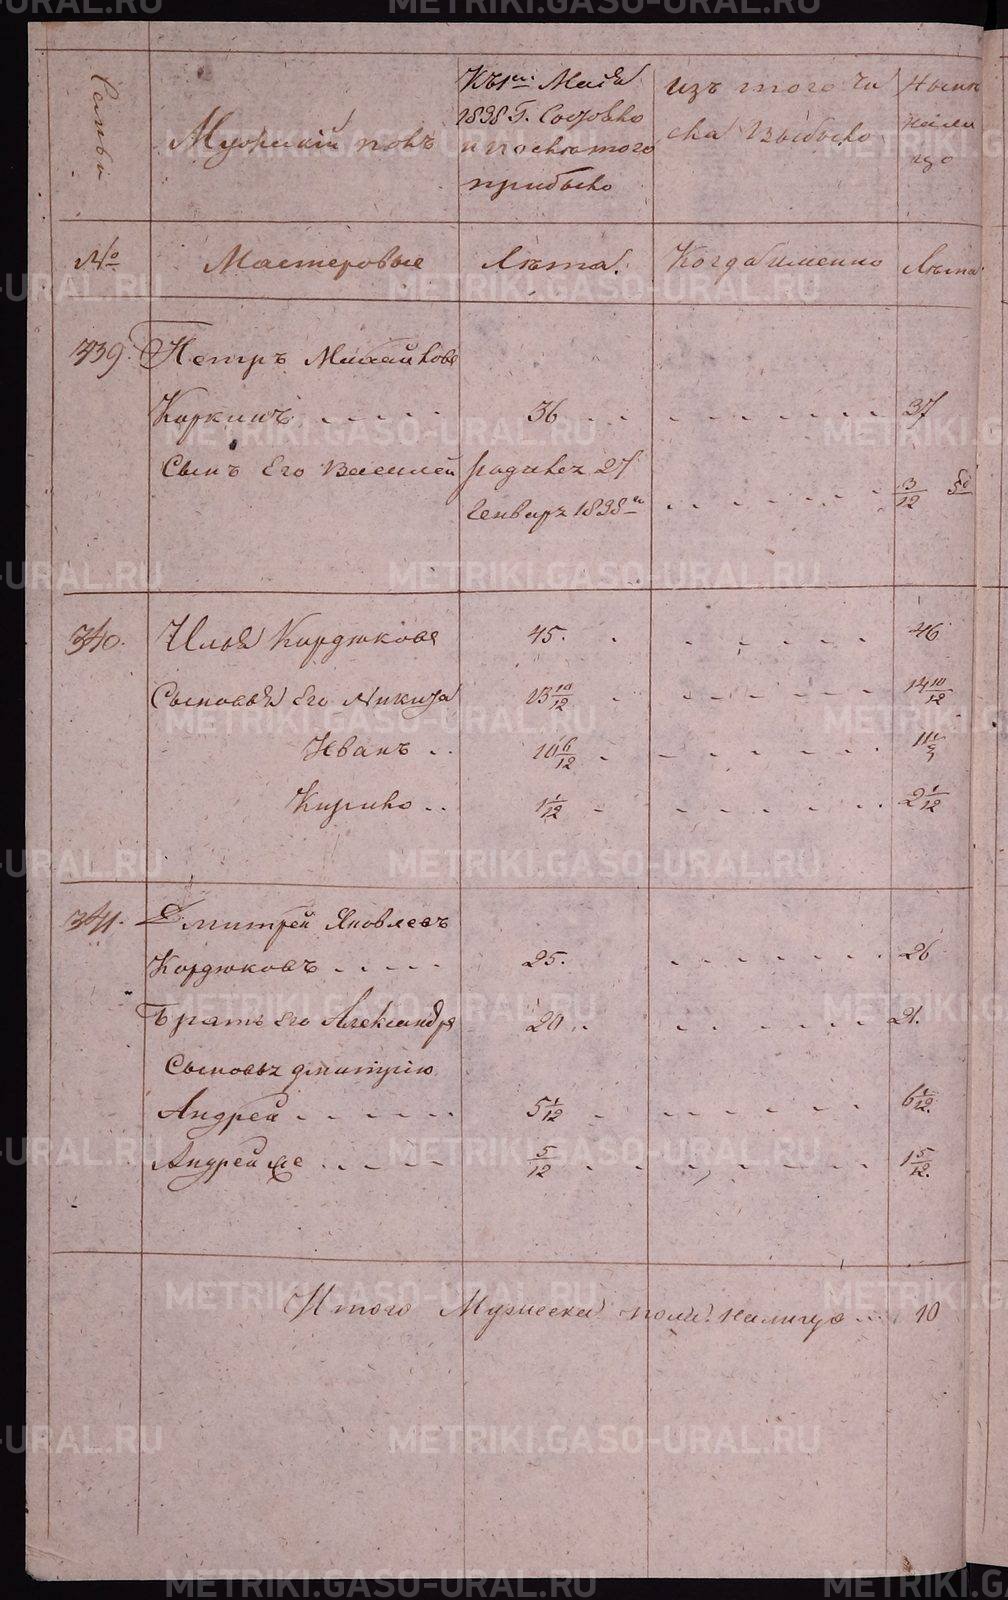 Семьи
Мужскій полъ
Къ 1му Маія
1838 Г. Состояло
и после того
прибыло
изъ того чи
сла Выбыло
Ныне
на ли
цо
№
Мастеровые
Лѣта.
Когда именно
Лѣта
339. Петръ Михайловъ
Коркинъ 36 37
Сынъ Его Василей родился 27
Генваря 1838 3/12
340. Илья Кордюковъ 45. 46
Сыновья Его Никита 13 10/12 14 10/12
Иванъ 10 6/12 11
Кирило 1 1/12 2 1/12
341. Дмитрей Яковлевъ
Кордюковъ 25. 26
Братъ Его Александръ 20 21.
Сыновья дмитрiю
Андрей 5 1/12 6 1/12.
Андрей же 5/12 1 5/12.
Итого Мужеска пола налицо 10
METRIKI.GASO-URAL.RU